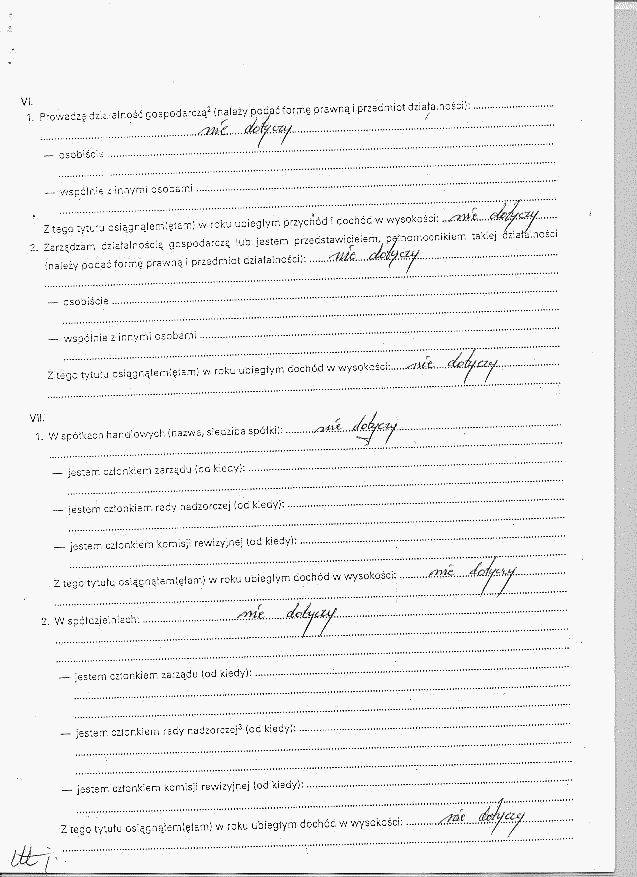 VI.
1. Prowadzę działalność gospodarczą² (należy podać formę prawną i przedmiot działalności):
nie dotyczy
— osobiście
— wspólnie z innymi osobami
Z tego tytułu osiągnąłem(ęłam) w roku ubiegłym przychód i dochód w wysokości: nie dotyczy
2. Zarządzam działalnością gospodarczą lub jestem przedstawicielem, pełnomocnikiem takiej działalności
(należy podać formę prawną i przedmiot działalności): nie dotyczy
— osobiście
— wspólnie z innymi osobami
Z tego tytułu osiągnąłem(ęłam) w roku ubiegłym dochód w wysokości: nie dotyczy
VII.
1. W spółkach handlowych (nazwa, siedziba spółki): nie dotyczy
— jestem członkiem zarządu (od kiedy):
— jestem członkiem rady nadzorczej (od kiedy):
— jestem członkiem komisji rewizyjnej (od kiedy):
Z tego tytułu osiągnąłem(ęłam) w roku ubiegłym dochód w wysokości: nie dotyczy
2. W spółdzielniach: nie dotyczy
— jestem członkiem zarządu (od kiedy):
— jestem członkiem rady nadzorczej³ (od kiedy):
— jestem członkiem komisji rewizyjnej (od kiedy):
Z tego tytułu osiągnąłem(ęłam) w roku ubiegłym dochód w wysokości: nie dotyczy